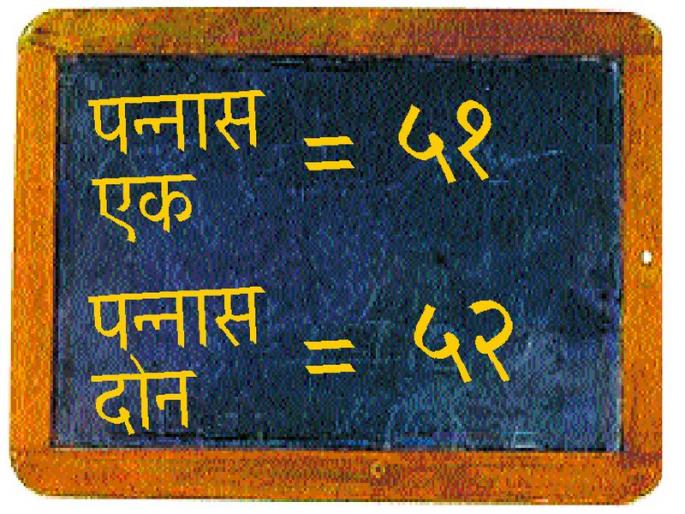 पन्नास
एक = ५१
पन्नास
दोन = ५२